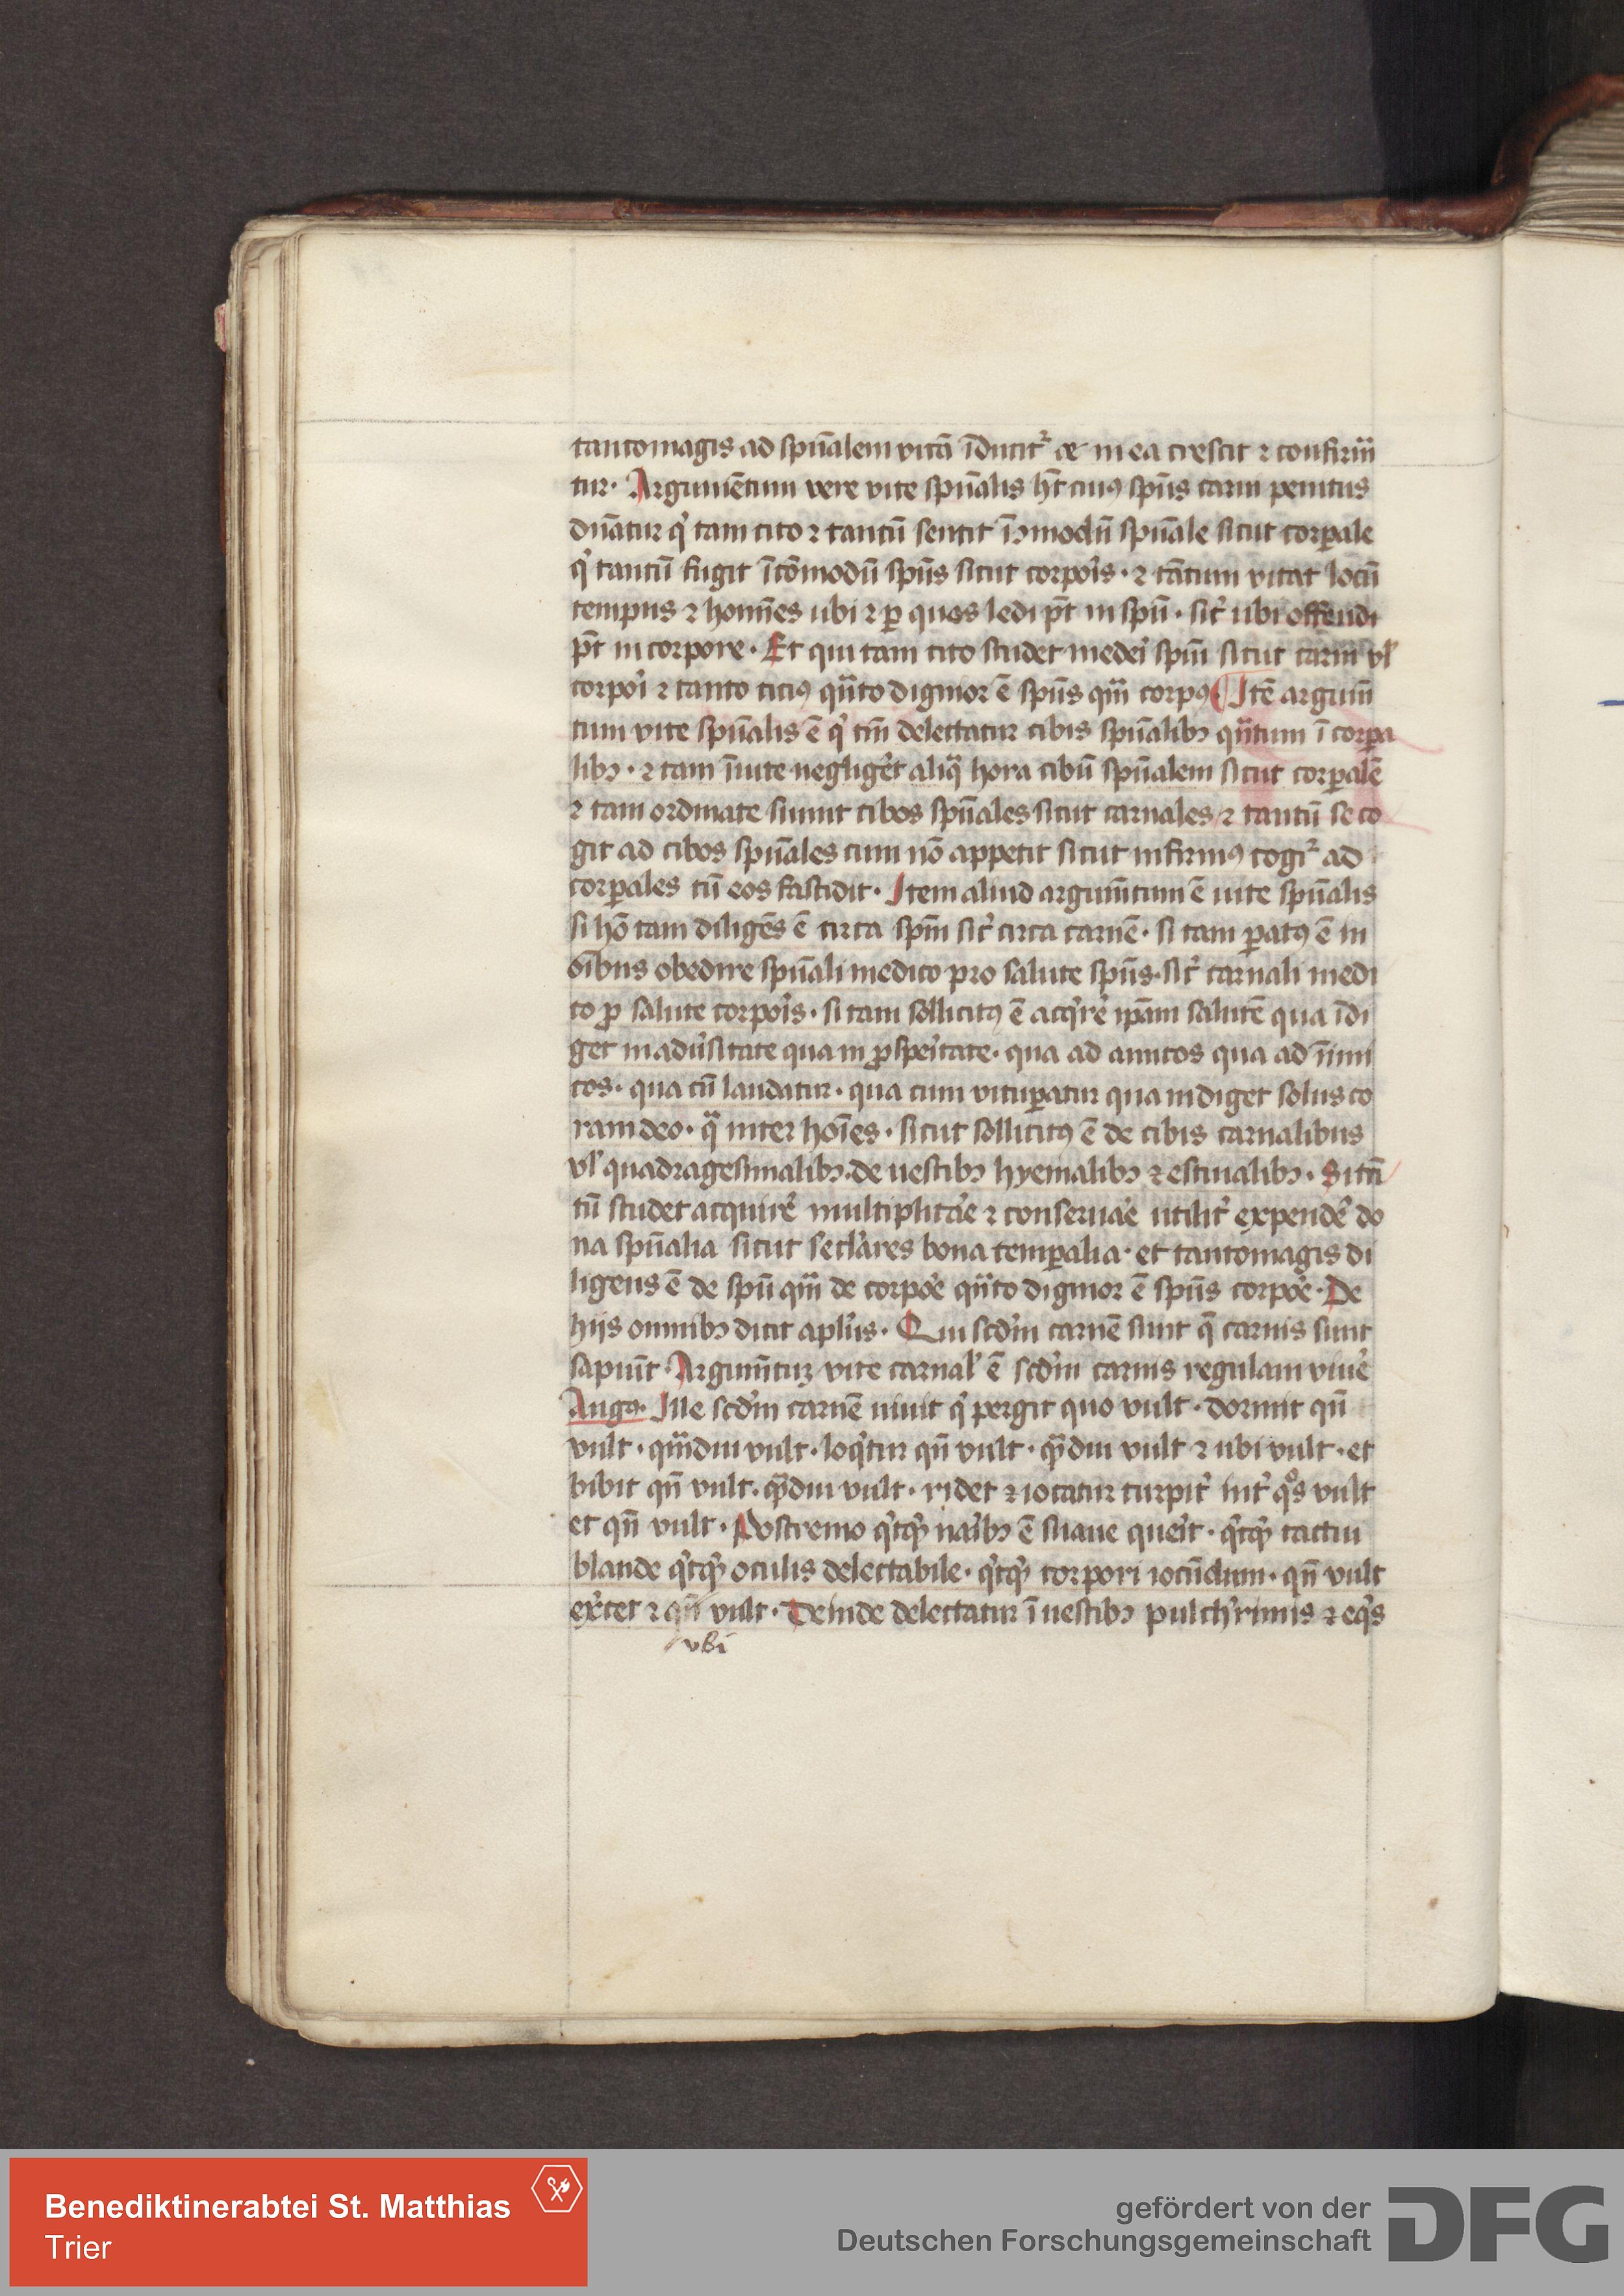 tantomagis ad spūalem vitā īducit᷑ et in ea crescit ⁊ confirm̄
tur. Argumētum vere vite spūalis h̄t cuiꝰ spūs carni penitus
dn̄atur q' tam cito ⁊ tantū sentit īↄmodū spūale sicut corꝑale
q' tantū fugit īcōmodū spūs sicut corpo'is · ⁊ tātum vitat locū
tempus ⁊ homīes ubi ⁊ ꝑ quos ledi pt̄ in spū · sic' ubi offendi
pt̄ in corpore · Et qui tam cito studet mede'i spūi sicut carni vl'
corpo'i ⁊ tanto ciciꝰ qn̄to dignior ē spūs qm̄ corpꝰ Itē argum̄
tum vite spūalis ē q' tm̄ delectatur cibis spūalibꝫ qn̄tum ī corꝑa
libꝫ · ⁊ tam īuite negliger̄t aliq̄ hora cibū spūalem sicut corꝑalē
⁊ tam ordinate sumit cibos spūales sicut carnales ⁊ tantū se co
git ad cibos spūales cum nō appetit sicut infirmꝰ cogit᷑ ad
corꝑales cū eos fastidit · Item aliud argum̄tum ē uite spūalis
si hō tam diligēs ē circa spm̄ sic' circa carnē · si tam ꝑatꝰ ē in
oībus obedire spūali medico pro salute spūs · sic' carnali medi
co ꝓ salute corpo'is · si tam sollicitꝰ ē acq'rē ip̄am salutē qua īdi
get in adu'sitate qua in ꝓspe'itate · qua ad amicos qua ad īimi
cos · qua cū laudatur · qua cum vituꝑatur qua indiget solus co
ram deo · q̄ inter hoīes · sicut sollicitꝰ ē de cibis carnalibus
vl' quadragesimalibꝫ · de uestibꝫ hyemalibꝫ ⁊ estiualibꝫ · Si tn̄
tū studet acquirē multiplicāe ⁊ conseruāe utilit' expendē do
na spūalia sicut sec'lares bona temꝑalia · et tantomagis di
ligens ē de spū qm̄ de corpoē qn̄to dignior ē spūs corpoē · De
hijs omnibꝫ dicit apl'us · Qui scd'm carnē sunt q̄ carnis sunt
sapiūt · Argum̄tuꝫ vite carnal' ē scd'm carnis regulam viuē
Augꝰ. Ille scd'm carnē uiuit q' pergit quo vult · dormit qn̄
vult · qm̄diu vult · loq'tur qn̄ vult · q̄diu vult ⁊ ubi vult · et
bibit qn̄ vult · q̄diu vult · ridet ⁊ iocatur turpit' int' qos vult
et qn̄ vult · Postremo q'cqd' na'ibꝫ ē suaue que'it · q'cqd' tactui
blande q'cqd' oculis delectabile · q'cqd' corpori iocūdum · qn̄ vult
ex'cet ⁊ qn̄ vult · Deinde delectatur ī uestibꝫ pulch'rimis ⁊ eq's
vbi
Benediktinerabtei St. Matthias
Trier
gefördert von der
Deutschen Forschungsgemeinschaft
DFG